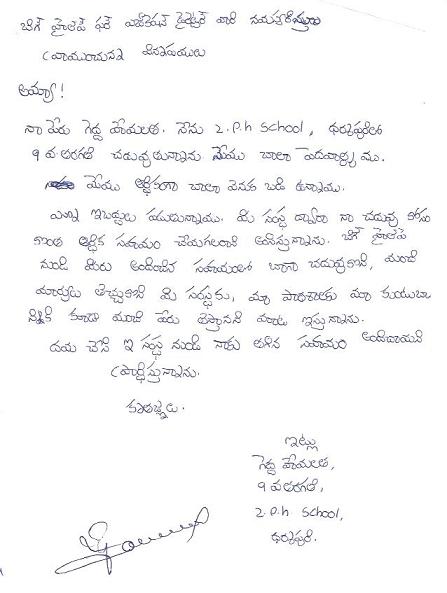 బిగ్ హెల్ప్ ఫర్ ఎడ్యుకేషన్ డైరెక్టర్ వారి దివ్యసముఖమునకు
వ్రాయుచున్న విన్నపములు
అయ్యా!
నా పేరు గెడ్డ హేమలత. నేను Z.P.h School, ధర్మపురిలో
9 వ తరగతి చదువుతున్నాను మేము చాలా పేదవాళ్ళము.
మేము ఆర్థికంగా చాలా వెనక బడి ఉన్నాము.
ఎన్నో ఇబ్బందులు పడుతున్నాము. మీ సంస్థ ద్వారా నా చదువు కోసం
కొంత ఆర్థిక సహాయం చేయగలరని ఆశిస్తున్నాను. బిగ్ హెల్ప్
నుండి మీరు అందించిన సహాయంతో బాగా చదువుకొని, మంచి
మార్కులు తెచ్చుకొని మీ సంస్థకు, మా పాఠశాలకు మా కుటుంబా
నికి కూడా మంచి పేరు తెస్తానని మాట ఇస్తున్నాను.
దయ చేసి ఈ సంస్థ నుండి నాకు తగిన సహాయం అందించాలని
ప్రార్థిస్తున్నాను.
కృతజ్ఞతలు.
ఇట్లు
గెడ్డ హేమలత,
9 వ తరగతి,
Z.P.h School,
ధర్మపురి.